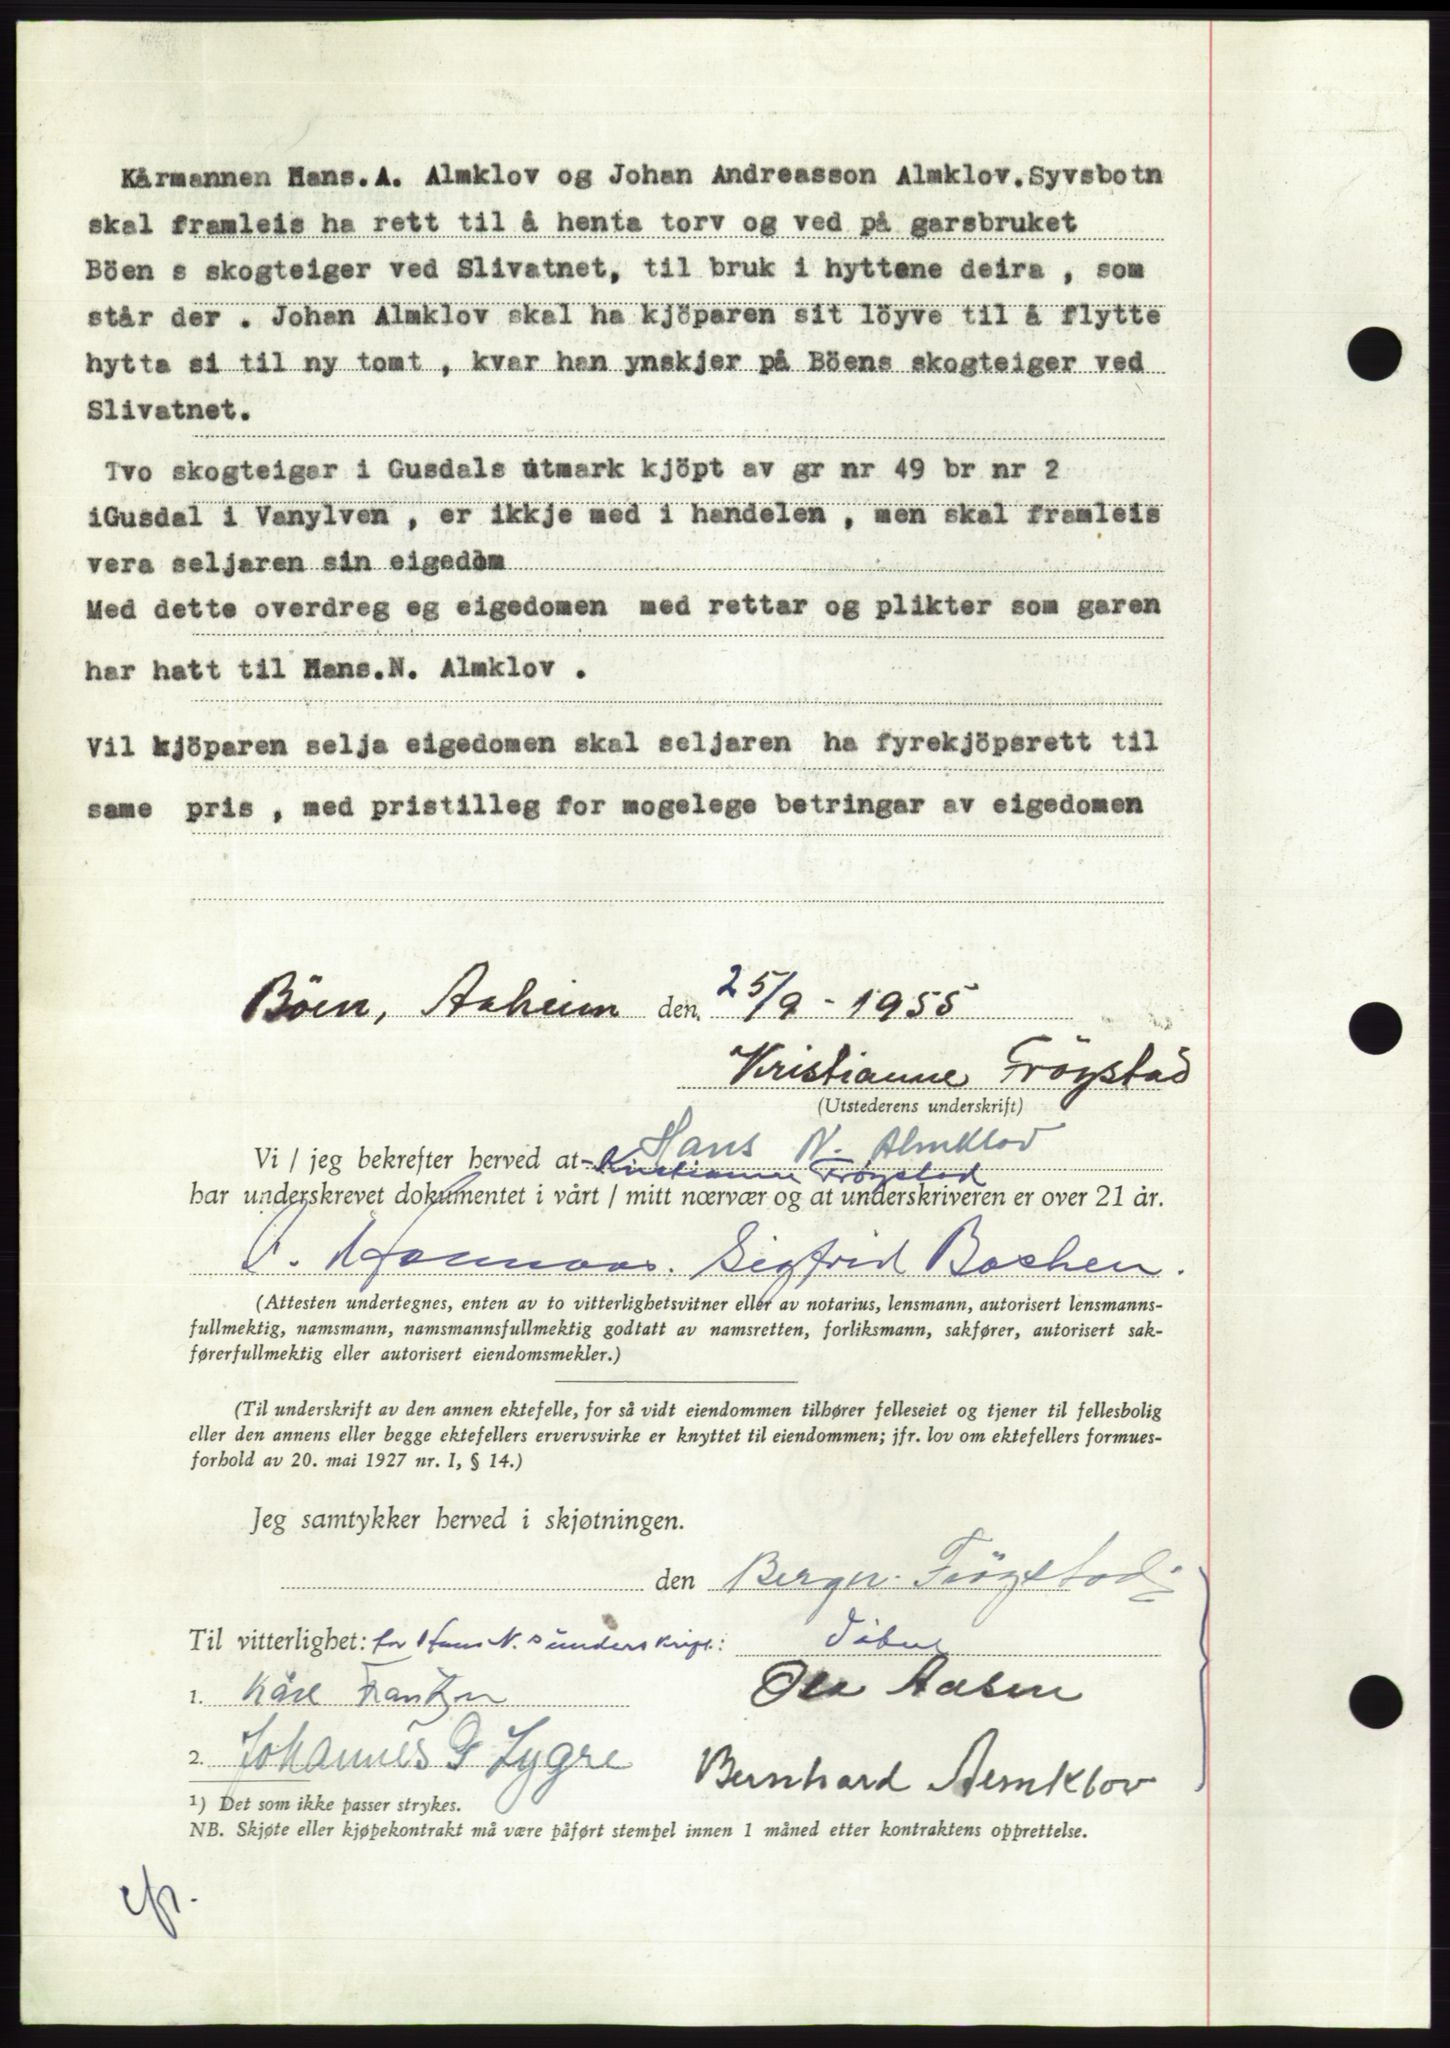 Kårmannen Hans.A. Almklov og Johan Andreasson Almklov.Syvsbotn
skal framleis ha rett til å henta torv og ved på garsbruket
Böen s skogteiger ved Slivatnet, til bruk i hyttene deira , som
står der . Johan Almklov skal ha kjöparen sit löyve til å flytte
hytta si til ny tomt , kvar han ynskjer på Böens skogteiger ved
Slivatnet.
Tvo skogteigar i Gusdals utmark kjöpt av gr nr 49 br nr 2
iGusdal i Vanylven , er ikkje med i handelen , men skal framleis
vera seljaren sin eigedom
Med dette overdreg eg eigedomen med rettar og plikter som garen
har hatt til Hans.N. Almklov .
Vil kjöparen selja eigedomen skal seljaren ha fyrekjöpsrett til
same pris , med pristilleg for mogelege betringar av eigedomen
Böen, Aaheim den 25/9 - 1955
Kristianne Frögstad
(Utstederens underskrift)
Hans N. Almklov
Vi / jeg bekrefter herved at - Kristianne Frögstad
har underskrevet dokumentet i vårt / mitt nærvær og at underskriveren er over 21 år.
Sigfrid Bachen.
(Attesten undertegnes, enten av to vitterlighetsvitner eller av notarius, lensmann, autorisert lensmanns-
fullmektig, namsmann, namsmannsfullmektig godtatt av namsretten, forliksmann, sakfører, autorisert sak-
førerfullmektig eller autorisert eiendomsmekler.)
(Til underskrift av den annen ektefelle, for så vidt eiendommen tilhører felleseiet og tjener til fellesbolig
eller den annens eller begge ektefellers ervervsvirke er knyttet til eiendommen; jfr. lov om ektefellers formues-
forhold av 20. mai 1927 nr. 1, § 14.)
Jeg samtykker herved i skjøtningen.
den Berger Frögstad
Til vitterlighet: for Hans N.s underskrift:
1. Kåre Frantzen
Ola Aasen
2. Johannes G Lygre
Bernhard Almklov
1) Det som ikke passer strykes.
NB. Skjøte eller kjøpekontrakt må være påført stempel innen 1 måned etter kontraktens opprettelse.